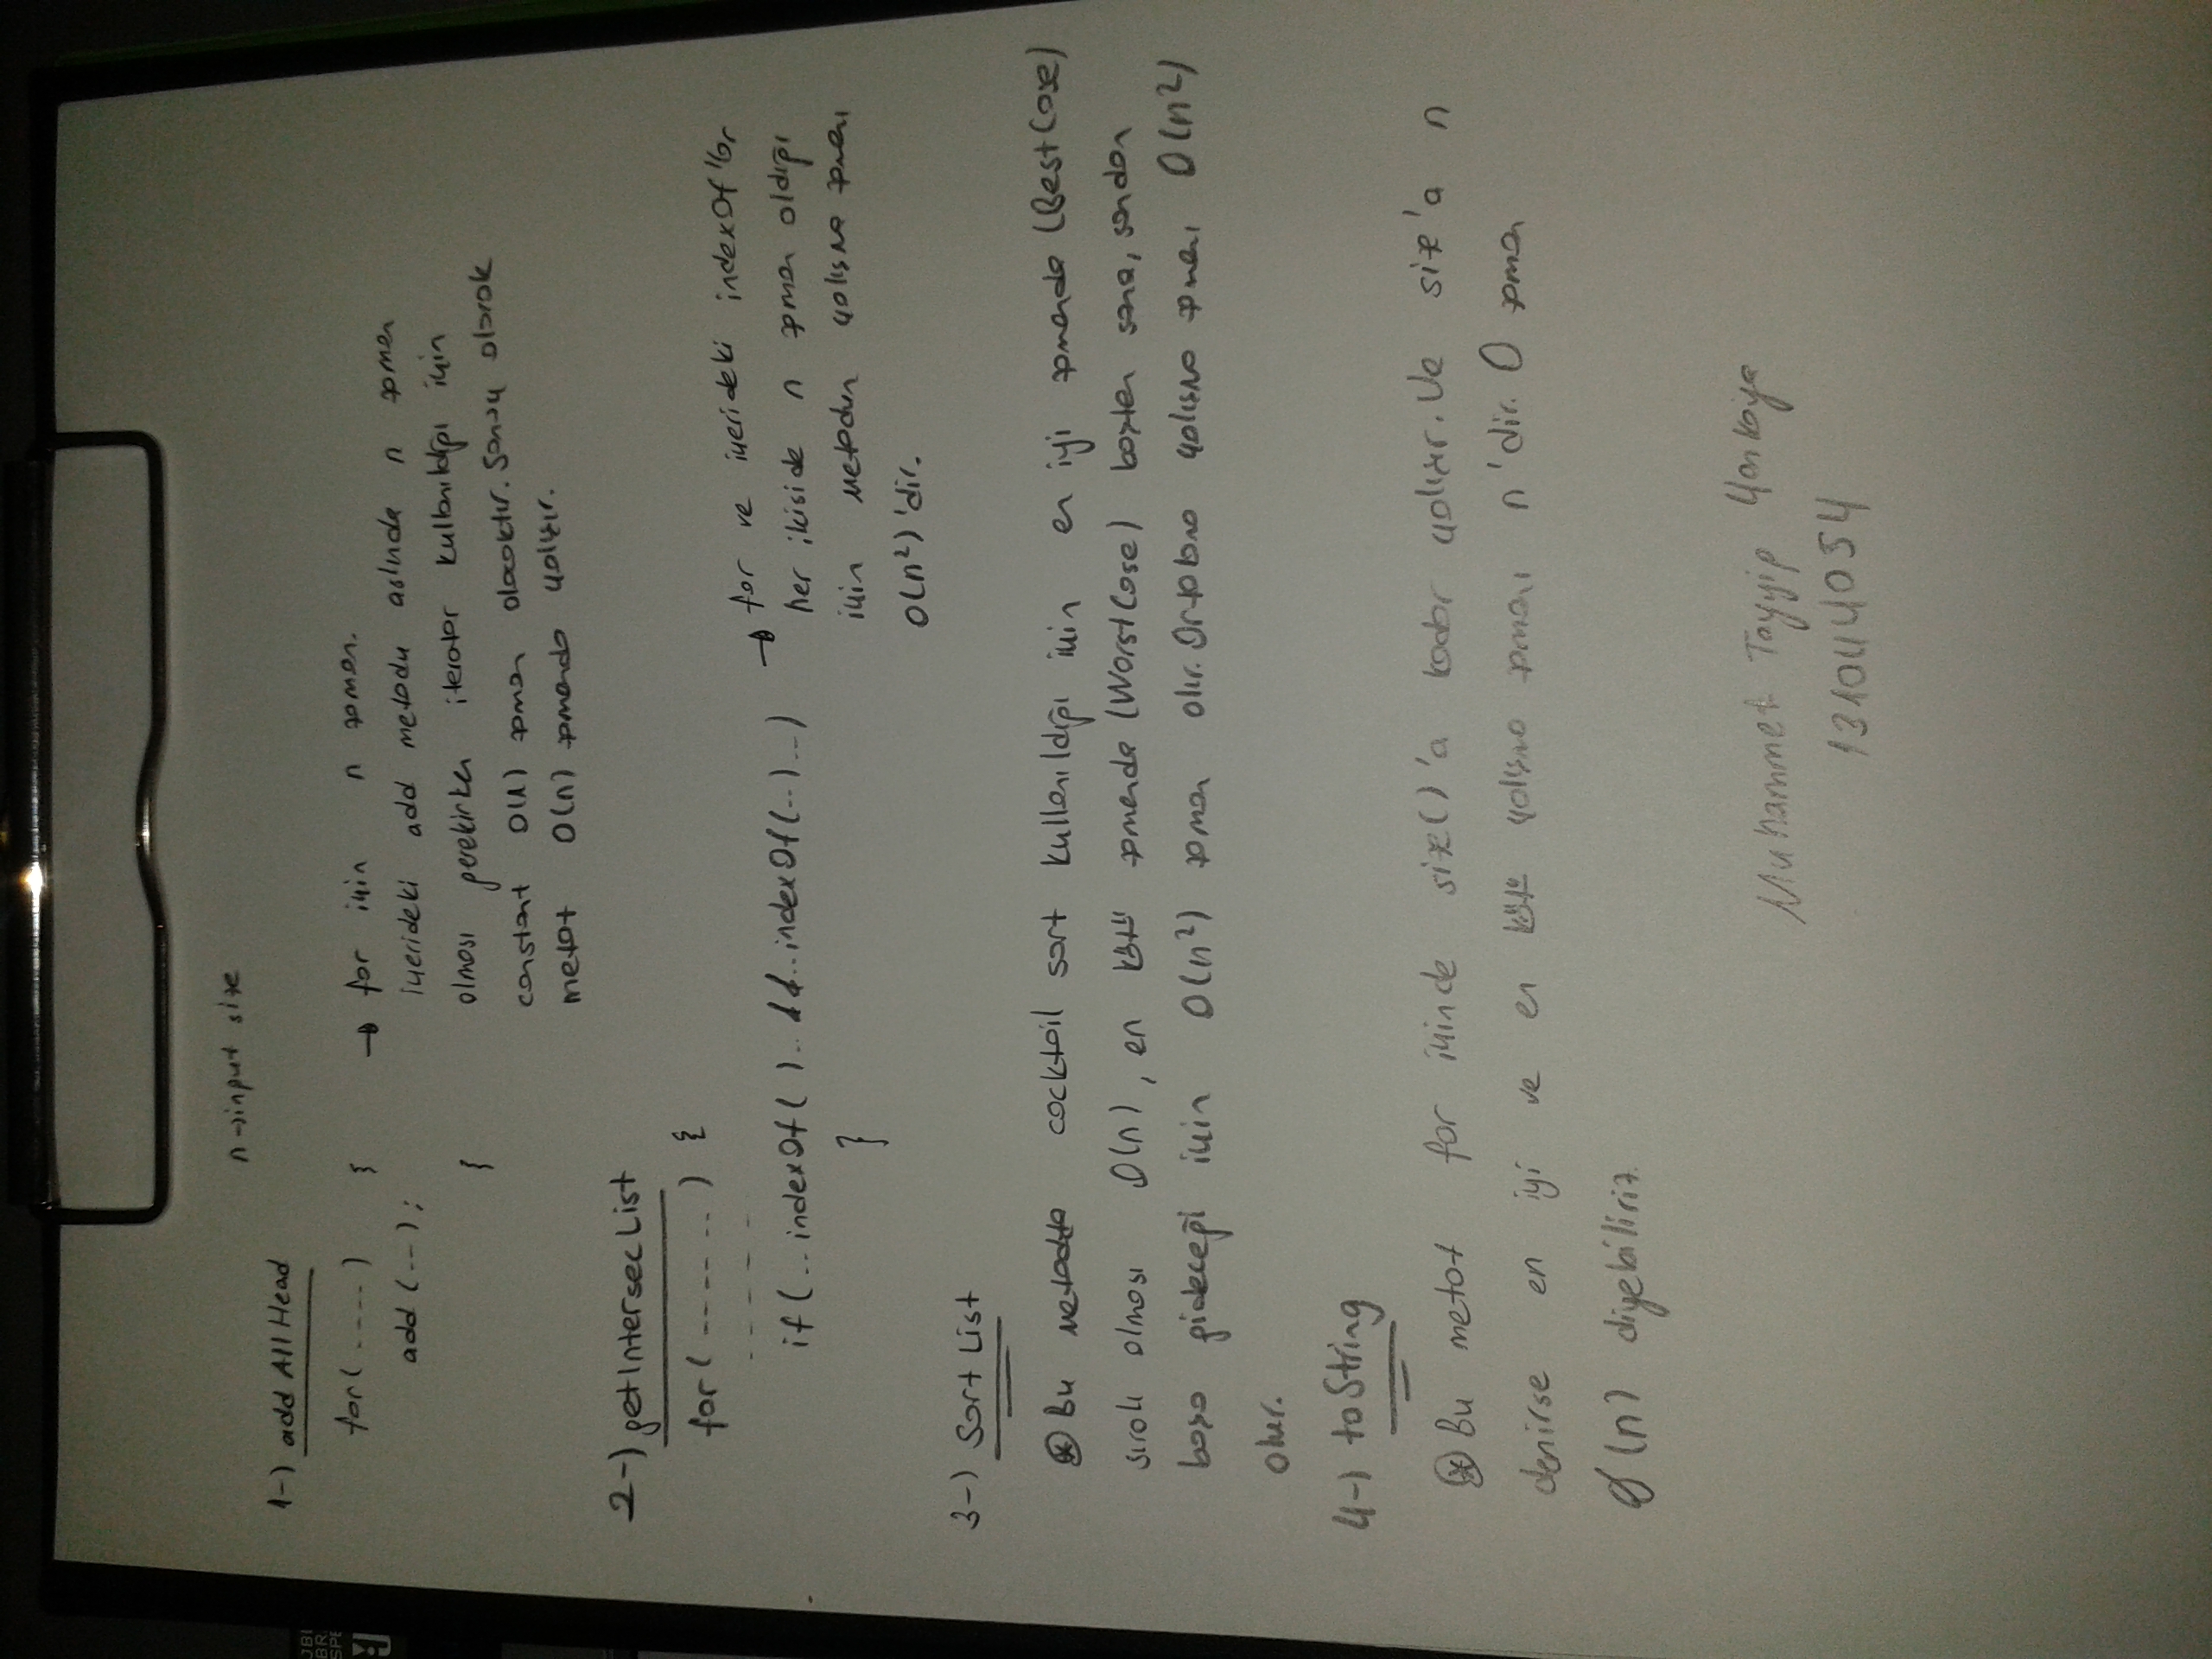 n→input size
1-) add All Head
for( .... ) {
add (...);
}
→ for için n zaman.
içerideki add metodu aslında n zaman
olması gerekirken iterator kullanıldığı için
constant O(1) zaman olacaktır. Sonuç olarak
metot O(n) zamanda çalışır.
2-) getIntersecList
for( ...... ) {
- - - - -
if( .. indexOf( ) .. && .. indexOf(..) ...)
}
→ for ve içerideki indexOf'lar
her ikiside n zaman oldığı
için metodun çalışma zamanı
O(n²)'dir.
3-) Sort List
* Bu metodta cocktail sort kullanıldığı için en iyi zamanda (BestCase)
sıralı olması O(n), en kötü zamanda (WorstCase) baştan sona, sondan
başa gideceği için O(n²) zaman olur. Ortalama çalışma zamanı O(n²)
olur.
4-) toString
* Bu metot for içinde size()'a kadar çalışır. Ve size'a n
denirse en iyi ve en kötü çalışma zamanı n'dir. O zaman
O(n) diyebiliriz.
Muhammet Tayyip Çankaya
131044054
JB
BR
SPE